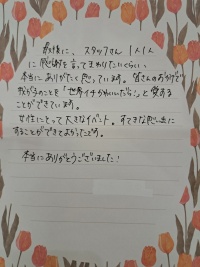 最後に、スタッフさん 1人1人
に感謝を言ってまわりたいくらい、
本当にありがたく思っています。皆さんのおかげで
我が子のことを「世界イチかわいいだろ!」と愛する
ことができています。
女性にとって大きなイベント。すてきな思い出に
することができてよかったです。
本当にありがとうございました!